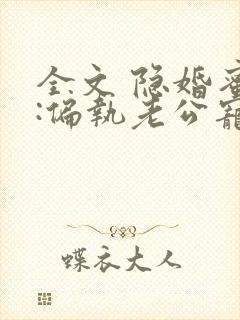 全文 隐婚蜜
:偏执老公宠
蝶衣大人